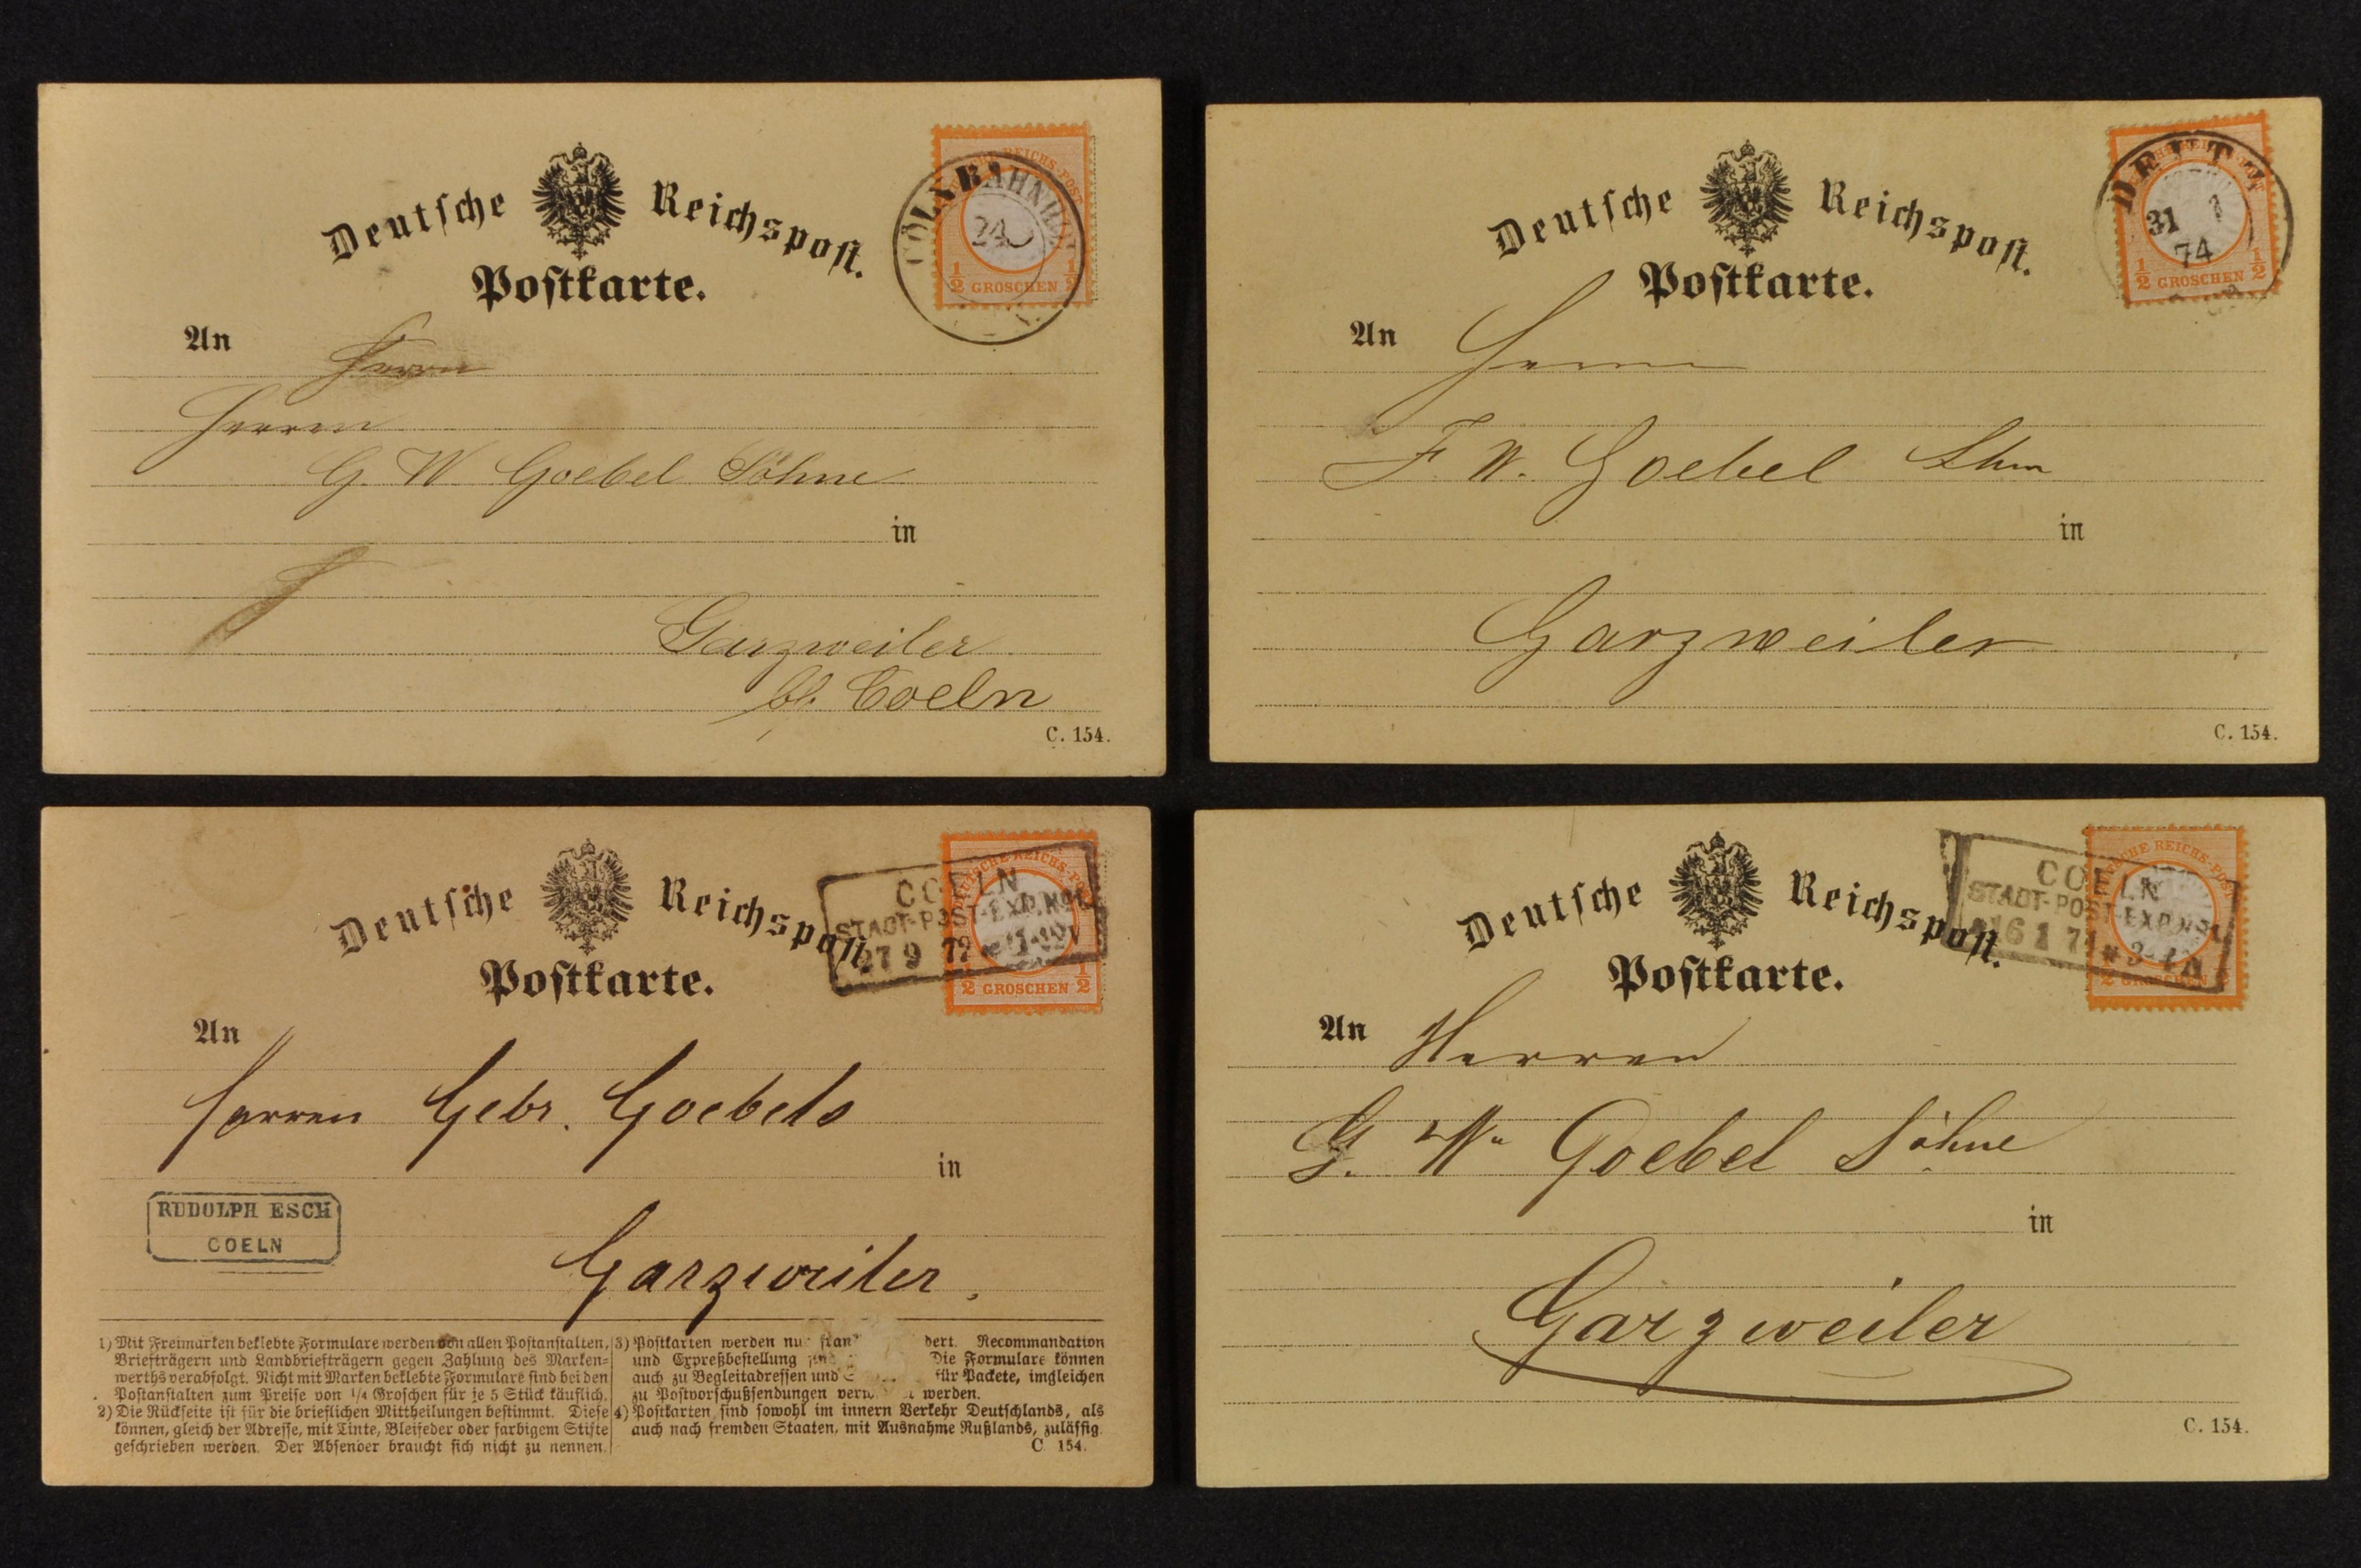 Deutsche Reichspost.
Postkarte.
DEUTSCHE REICHS-POST
CÖLN BAHNHOF
24
1/2 GROSCHEN 1/2
An Herrn
Herren
G. W. Goebel Söhne
in
Garzweiler
b/ Coeln
C. 154.
Deutsche Reichspost.
Postkarte.
DEUTZ
31 1
74
1/2 GROSCHEN 1/2
An Herrn
F. W. Goebel
in
Garzweiler
C. 154.
Deutsche Reichspost.
Postkarte.
DEUTSCHE REICHS-POST
COELN
STADT-POST-EXP. No 1
27 9 72 11-12 V
1/2 GROSCHEN 1/2
An
Herren Gebr. Goebels
in
RUDOLPH ESCH
COELN
Garzweiler.
1) Mit Freimarken beklebte Formulare werden von allen Postanstalten,
Briefträgern und Landbriefträgern gegen Zahlung des Marken-
werths verabfolgt. Nicht mit Marken beklebte Formulare sind bei den
Postanstalten zum Preise von 1/4 Groschen für je 5 Stück käuflich.
2) Die Rückseite ist für die brieflichen Mittheilungen bestimmt. Diese
können, gleich der Adresse, mit Tinte, Bleifeder oder farbigem Stifte
geschrieben werden. Der Absender braucht sich nicht zu nennen.
3) Postkarten werden nur dert. Recommandation
und Expreßbestellung sind Die Formulare können
auch zu Begleitadressen und für Packete, imgleichen
zu Postvorschußsendungen werden.
4) Postkarten sind sowohl im innern Verkehr Deutschlands, als
auch nach fremden Staaten, mit Ausnahme Rußlands, zulässig.
C. 154.
Deutsche Reichspost.
Postkarte.
DEUTSCHE REICHS-POST
COELN
STADT-POST-EXP. No 1
16 1 74 * 3-4 N
1/2 GROSCHEN
An Herren
G. Wm Goebel Söhne
in
Garzweiler
C. 154.